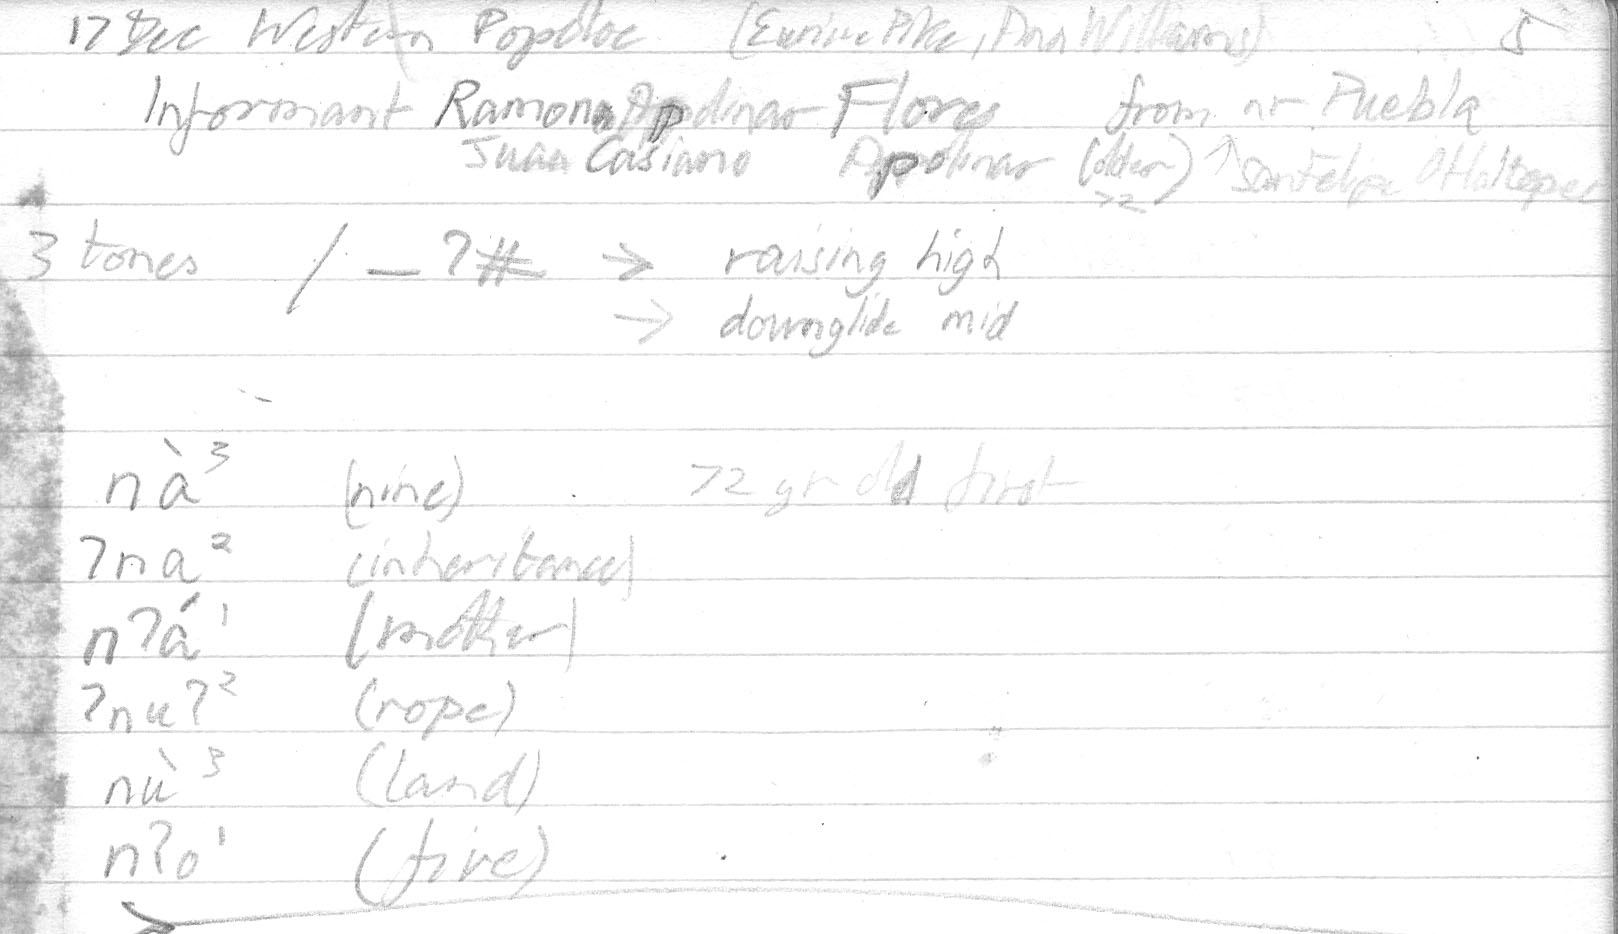 17 Dec Western Popoloc (Eunice Pike, Ann Williams) 5
Informant Ramona Apolinar Flores from nr Puebla
Juan Casiano Apolinar (older) 72 ↑ San Felipe Otlaltepec
3 tones / — ʔ# → raising high
→ downglide mid
nà³ (nine) 72 yr old first
ʔna² (inheritance)
nʔá¹ (mother)
ʔnuʔ² (rope)
nù³ (land)
nʔo¹ (five)